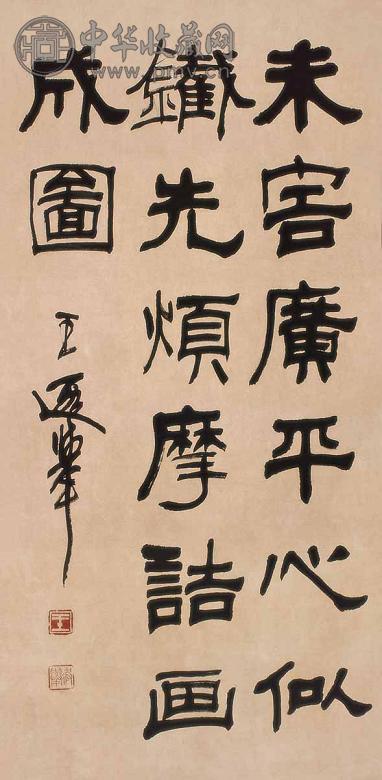 未害廣平心似
鐵先煩摩詰画
成圖
王遐舉
中华收藏网